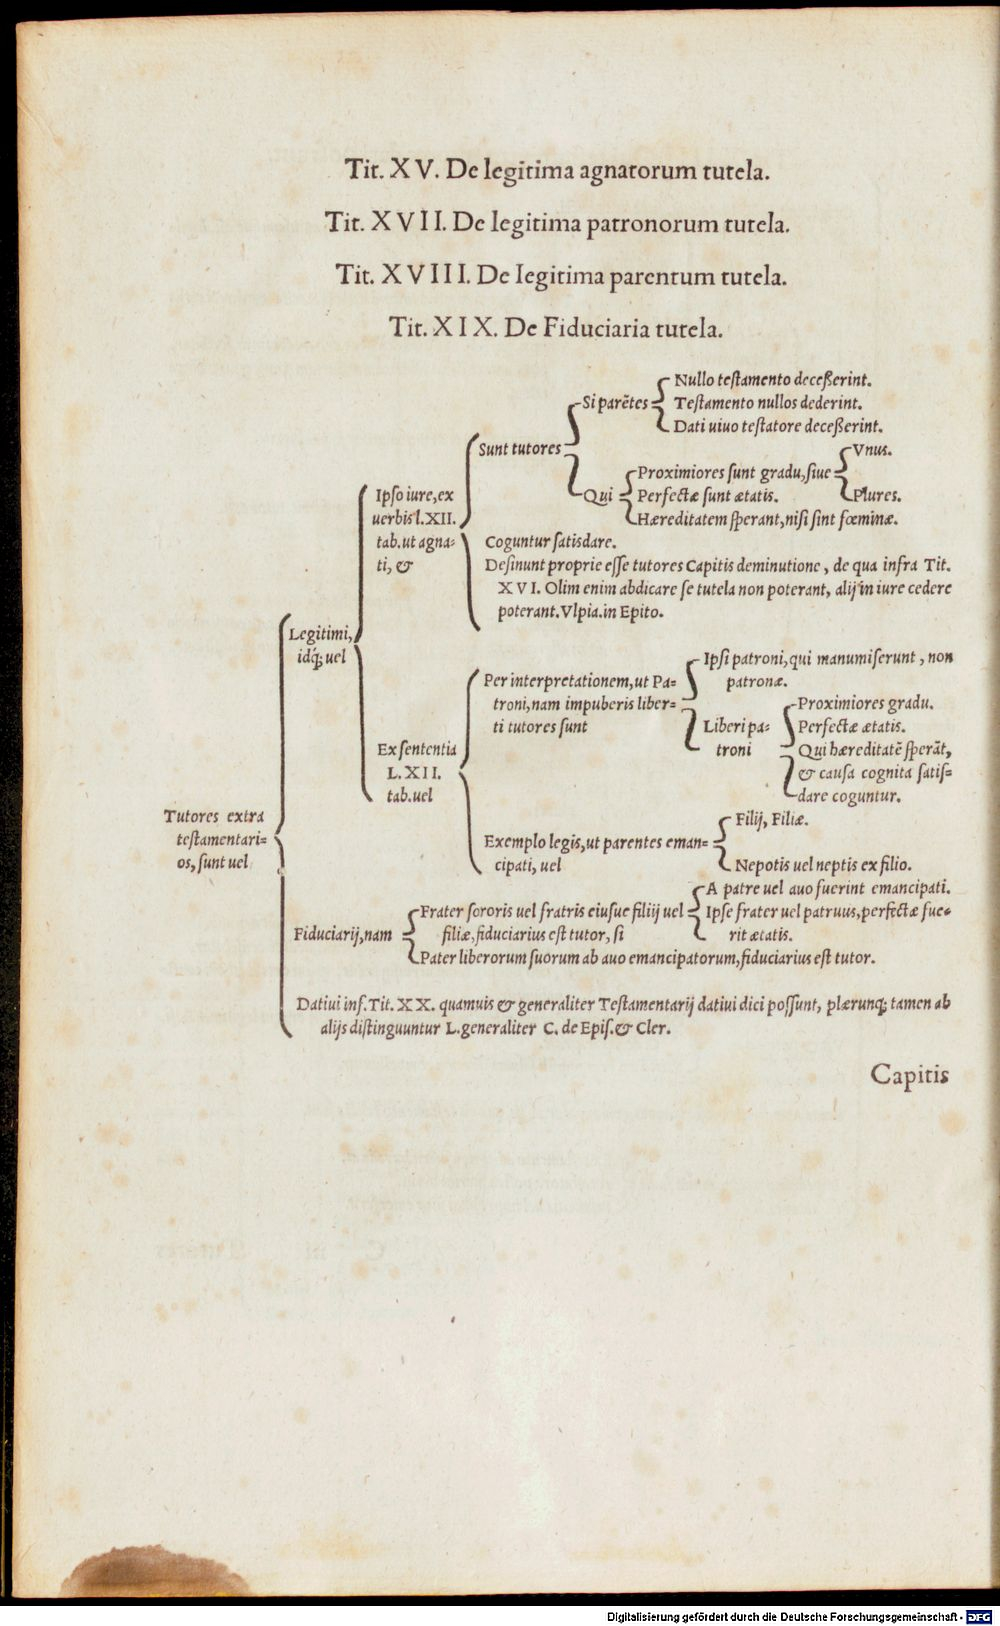 Tit. XV. De legitima agnatorum tutela.
Tit. XVII. De legitima patronorum tutela.
Tit. XVIII. De legitima parentum tutela.
Tit. XIX. De Fiduciaria tutela.
Tutores extra
testamentari-
os, sunt uel
Legitimi,
idq́; uel
Ipso iure, ex
uerbis l. XII.
tab. ut agna-
ti, &
Sunt tutores
Si parẽtes
Nullo testamento deceßerint.
Testamento nullos dederint.
Dati uiuo testatore deceßerint.
Qui
Proximiores sunt gradu, siue
Vnus.
Plures.
Perfectæ sunt ætatis.
Hæreditatem sperant, nisi sint fœminæ.
Coguntur satisdare.
Desinunt proprie esse tutores Capitis deminutione, de qua infra Tit.
XVI. Olim enim abdicare se tutela non poterant, alij in iure cedere
poterant. Vlpia. in Epito.
Ex sententia
L. XII.
tab. uel
Per interpretationem, ut Pa-
troni, nam impuberis liber-
ti tutores sunt
Ipsi patroni, qui manumiserunt, non
patronæ.
Liberi pa-
troni
Proximiores gradu.
Perfectæ ætatis.
Qui hæreditatẽ sperãt,
& causa cognita satis-
dare coguntur.
Exemplo legis, ut parentes eman-
cipati, uel
Filij, Filiæ.
Nepotis uel neptis ex filio.
Fiduciarij, nam
Frater sororis uel fratris eiusue filiij uel
filiæ, fiduciarius est tutor, si
A patre uel auo fuerint emancipati.
Ipse frater uel patruus, perfectæ fue-
rit ætatis.
Pater liberorum suorum ab auo emancipatorum, fiduciarius est tutor.
Datiui inf. Tit. XX. quamuis & generaliter Testamentarij datiui dici possunt, plærunq; tamen ab
alijs distinguuntur L. generaliter C. de Epis. & Cler.
Capitis
Digitalisierung gefördert durch die Deutsche Forschungsgemeinschaft - DFG